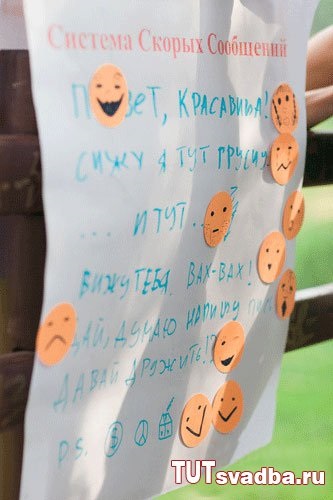 Система Скорых Сообщений
П вет, КРАСАВИЦА!
СИЖУ Я ТУТ ГРУСНУ
... И ТУТ...
ВИЖУ ТЕБЯ. ВАХ-ВАХ!
АЙ, ДУМАЮ НАПИШУ
ДАВАЙ ДРУЖИТЬ!?
P.S. $
TUTsvadba.ru